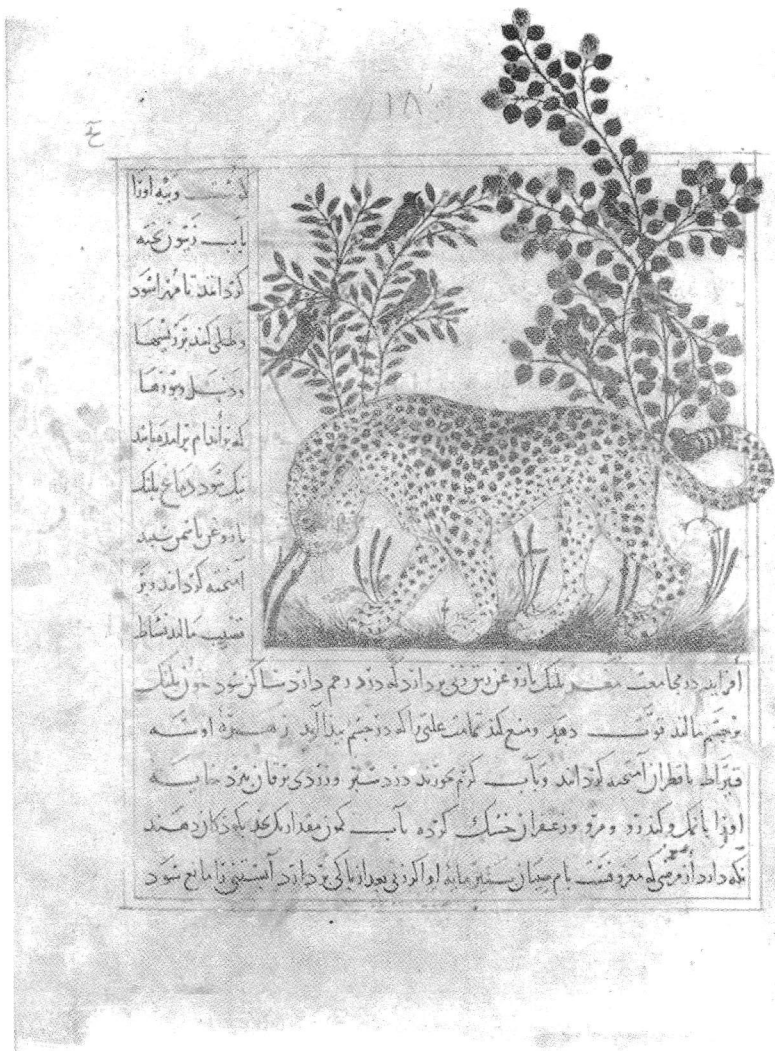 ۱۸
گوشت و پیه او را
بآب زیتون پخته
گردانند تا مهرا شود
و طلی کنند بر ریشها
و دنبل و بثرها
که بر اندام برآمده باشد
نیک شود دماغ پلنک
با روغن یاسمن سپید
آمیخته گردانند و بر
قضیب مالند نشاط
افزاید در مجامعت مغز پلنک با روغن زیتون زنی بردارد که درد رحم دارد ساکن شود خون پلنک
بر چشم مالند قوت دهد و منع کند تمامت علتی را که در چشم پیدا آید زهره او سه
قیراط با قطران آمیخته گردانند و بآب گرم خورند درد و زردی یرقان ببرد خایه
او را با نمک و کندر و مر و زعفران خشک کرده بآب مقدار کودکان دهند
نگه دارد از مرضی که معروفست بام صبیان او اگر زنی بعد از پاکی بردارد آبستنی را مانع شود